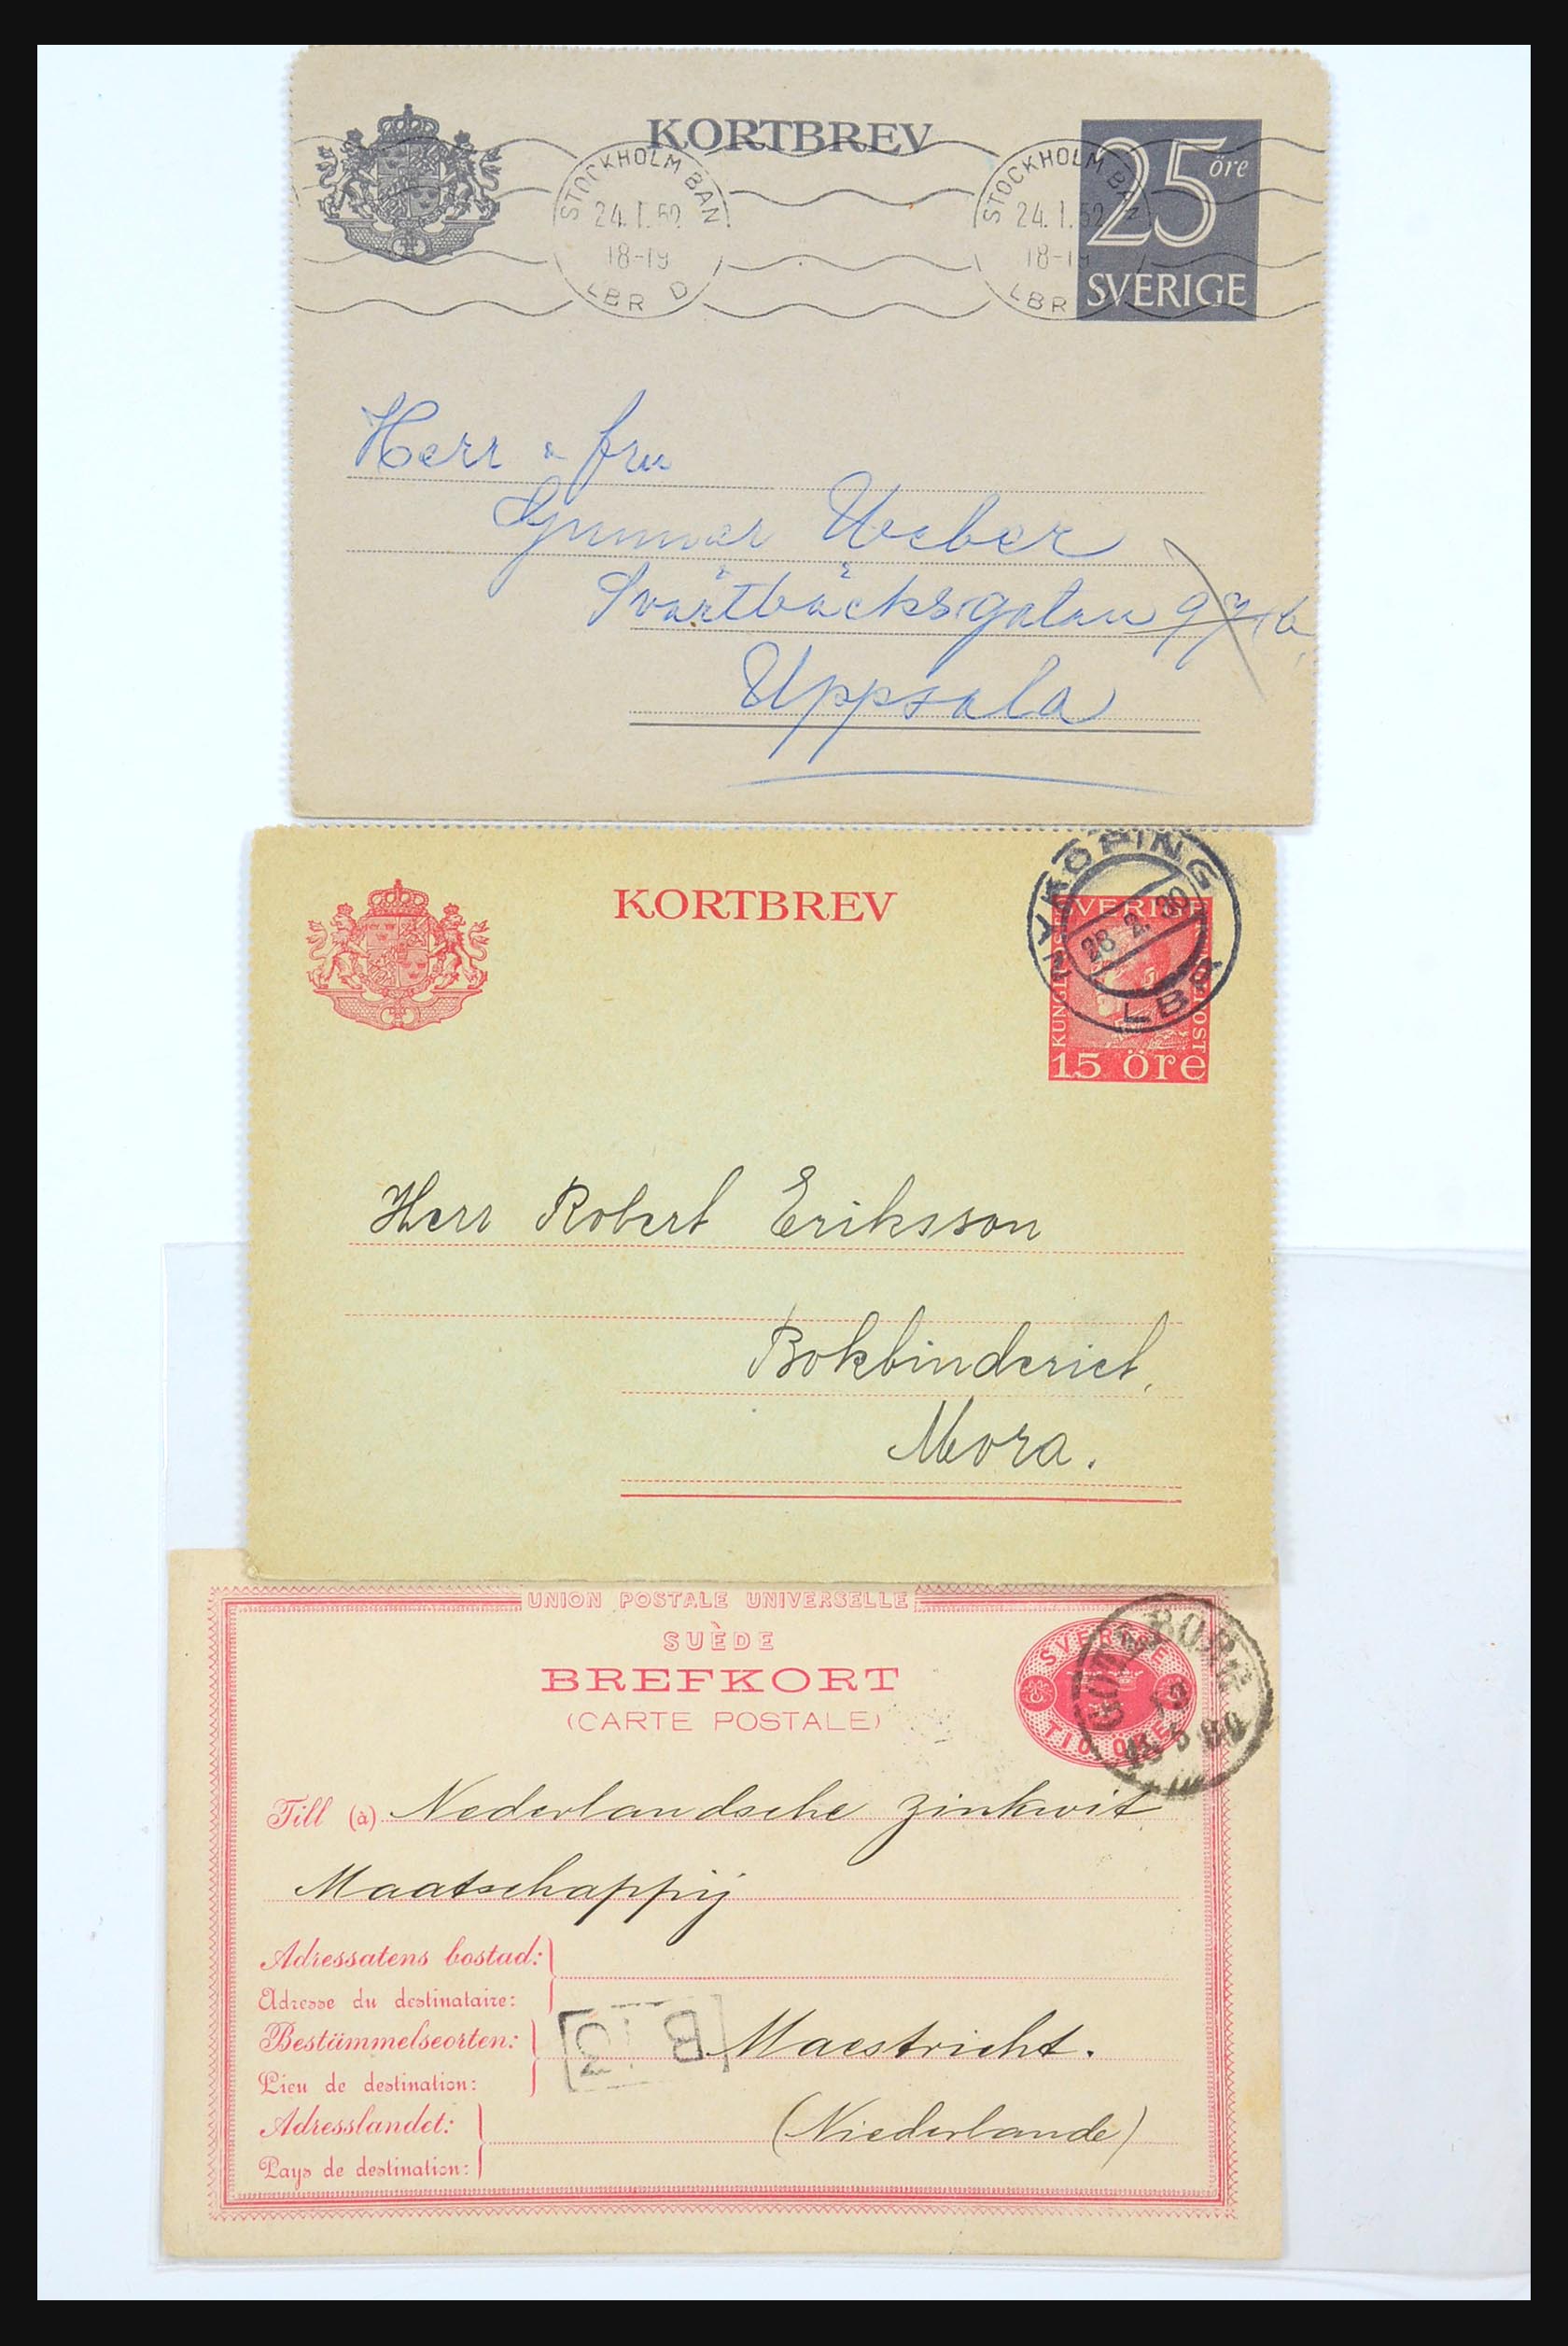 KORTBREV
25 öre
SVERIGE
STOCKHOLM BAN
24.1.52
18-19
LBR D
STOCKHOLM BAN
24.1.52
18-19
LBR
Herr & fru
Gunnar Weber
Svartbäcksgatan
Uppsala
KORTBREV
SVERIGE
15 öre
NYKÖPING
28 2. 30
LBR
Herr Robert Eriksson
Bokbinderiet,
Mora.
UNION POSTALE UNIVERSELLE
SUÈDE
BREFKORT
(CARTE POSTALE)
SVERIGE
TIO ÖRE
GÖTEBORG
Till (à) Nederlandsche Zinkwit
Maatschappij
Adressatens bostad:
Adresse du destinataire:
Bestämmelseorten: Maestricht.
Lieu de destination:
Adresslandet: (Niederlande)
Pays de destination: